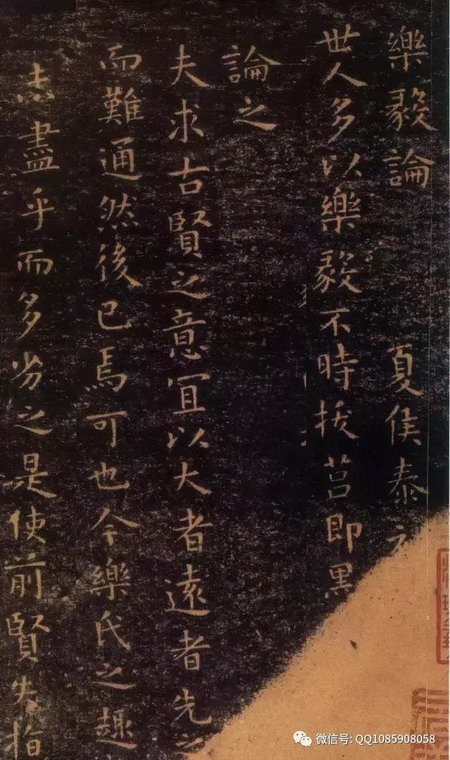 樂毅論 夏侯泰
世人多以樂毅不時拔莒即墨
論之
夫求古賢之意宜以大者遠者先之
而難通然後已焉可也今樂氏之趣
盡乎而多劣之是使前賢失指
微信号: QQ1085908058